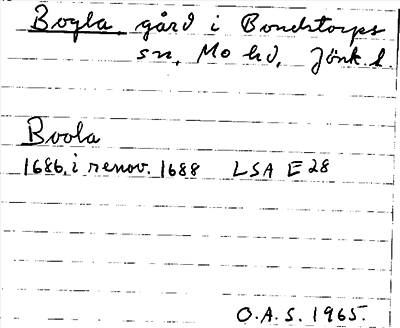 Bogla gård i Bondstorps
sn, Mo hd, Jönk. l.
Boola
1686, i renov. 1688 LSA E 28
O.A.S. 1965.